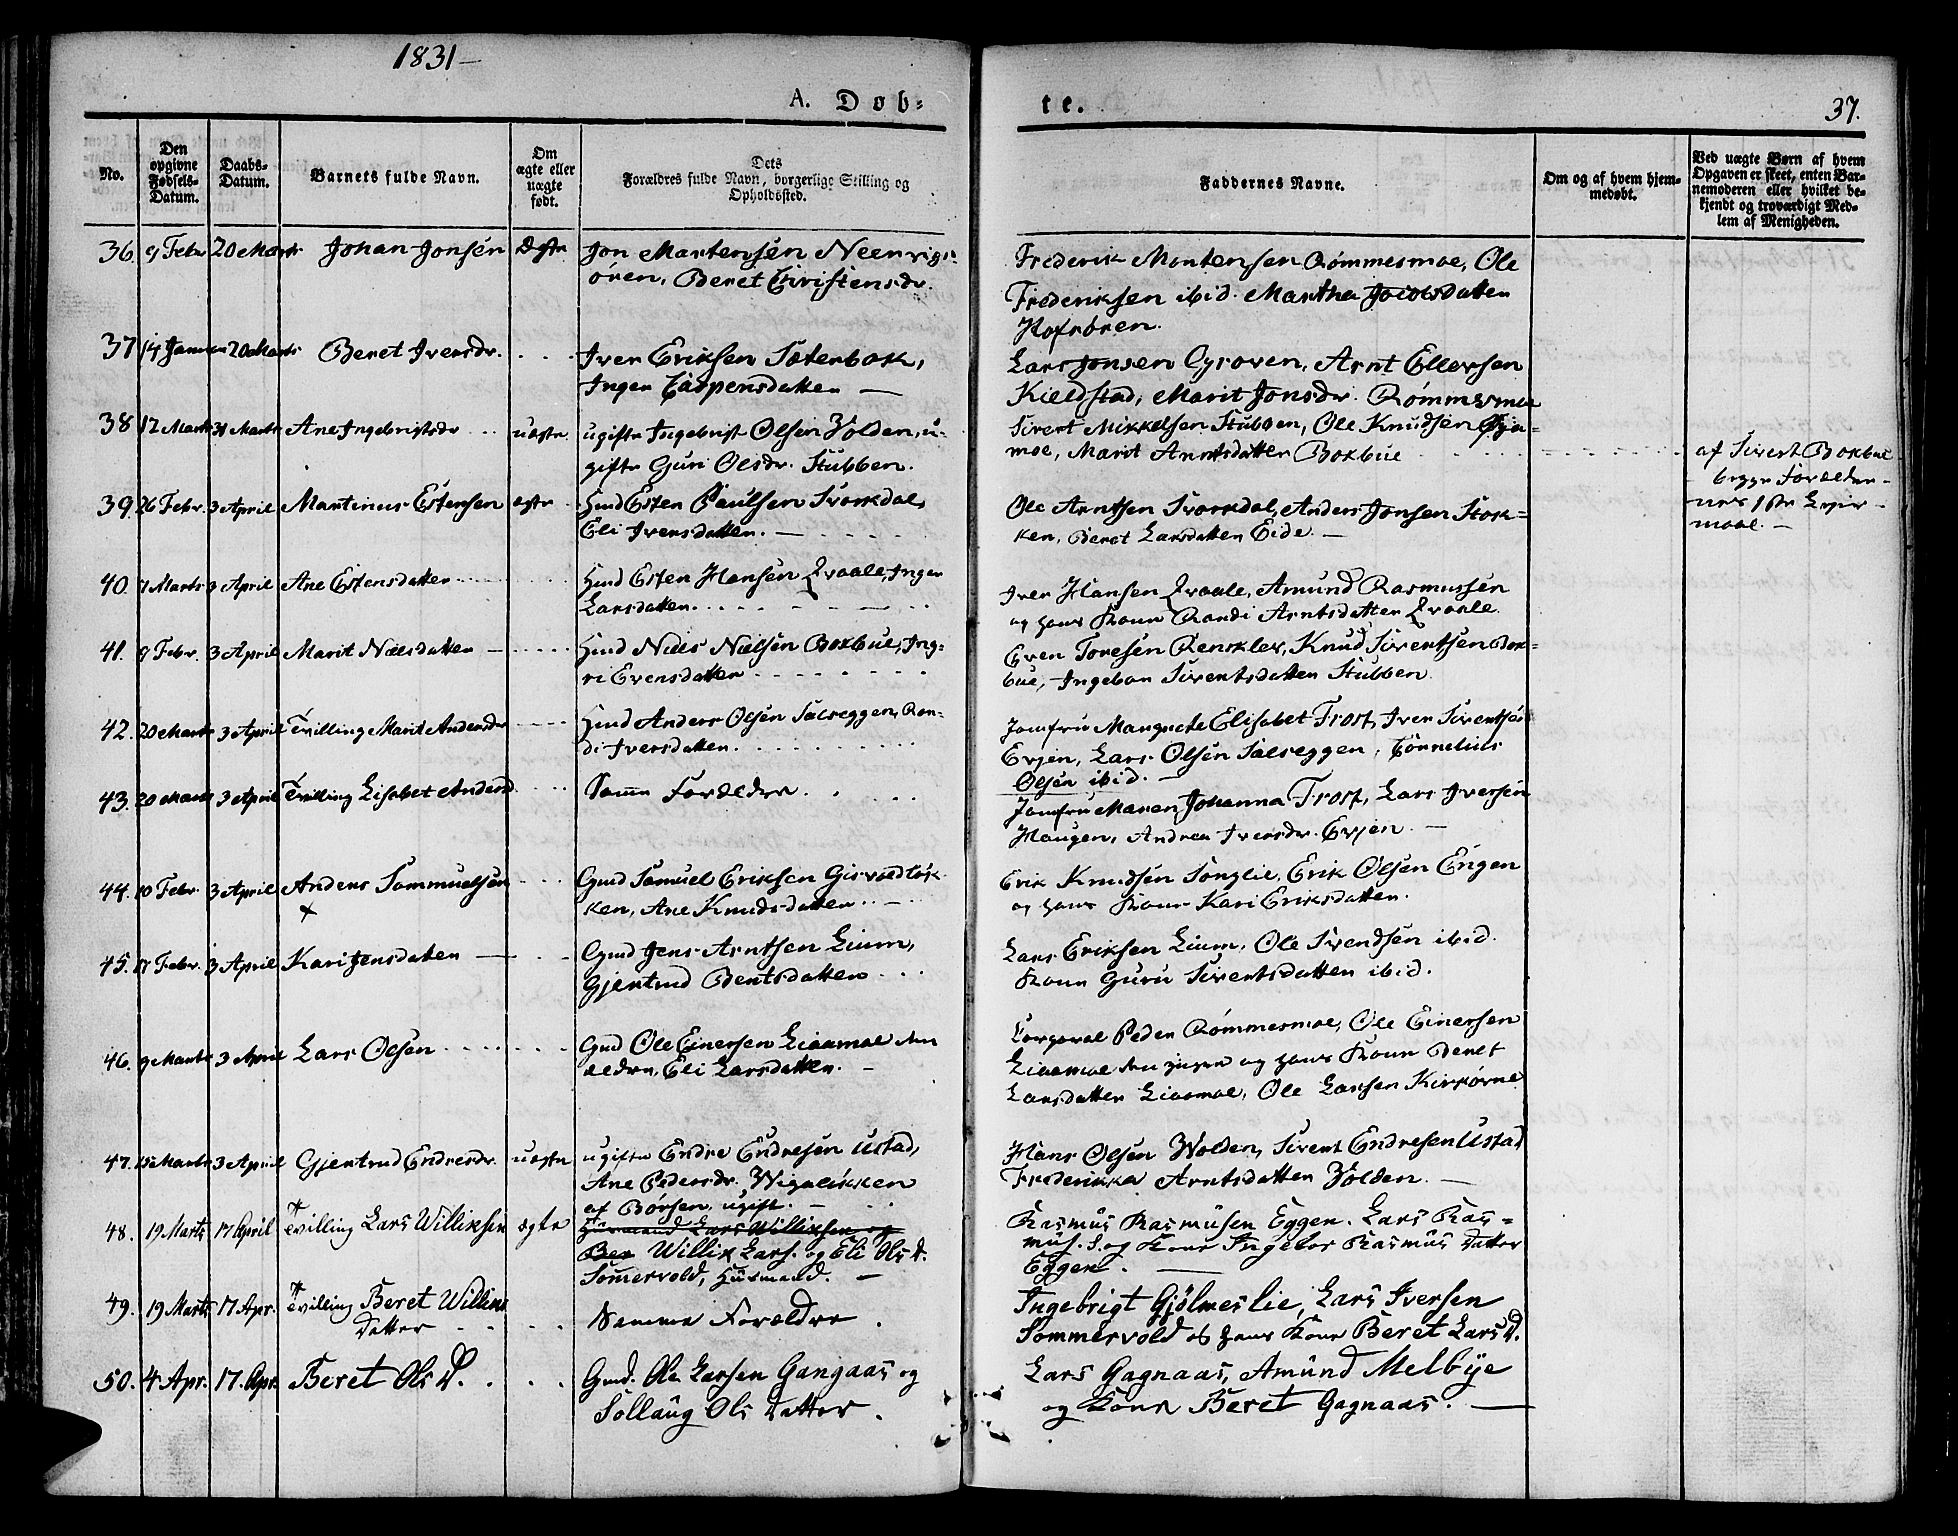 1831
A. Døb-
te.
37.
No.
Den opgivne Fødsels-Datum.
Daabs-Datum.
Barnets fulde Navn.
Om ægte eller uægte født.
Dets Forældres fulde Navn, borgerlige Stilling og Opholdssted.
Faddernes Navne.
Om og af hvem hjem-
medøbt.
Ved uægte Børn af hvem
Opgaven er skeet, enten Bar-
nemoderen eller hvilket be-
kjendt og troværdigt Med-
lem af Menigheden.
36. 9 Febr 20 Marts Johan Jonsen Ægte Jon Mortensen
ören, Beret Christensdr.
Frederik Mortensen Römmesmoe, Ole
Frederiksen ibid. Martha Jocobsdatter
Hofrören.
37 14 Januar 20 Marts Beret Iversdr. Iver Eriksen Sæterbok,
Inger Caspersdatter —
Lars Jonsen Gyroven, Arnt Ellevsen
Kieldstad, Marit Jonsdr. Römmesmoe
38 12 Marts 31 Marts Ane Ingebrigtsdr uægte ugifte Ingebrigt Olsen Volden, u-
gifte Guri Olsdr. Stubben.
Sivert Mikkelsen Stubben, Ole Knudsen Øya-
moe, Marit Arntsdatter Bokbue
af Sivert Bokbue
begge Forældre-
nes 1ste Leier-
maal. —
39. 26 Febr. 3 April Martinus Estensen ægte Hmd Esten Paulsen Svorkdal,
Eli Iversdatter. —
Ole Arntsen Svorkdal, Anders Jonsen Stok-
ken, Beret Larsdatter Eide. —
40. 7 Marts 3 April Ane Estensdatter Hmd Esten Hansen Qvaale, Inger
Larsdatter.
Iver Hansen Qvaale, Amund Rasmussen
og hans Kone Randi Arntsdatter Qvaale.
41. 8 Febr. 3 April Marit Nielsdatter — Hmd Niels Nielsen Bokbue, Ing-
ri Evensdatter
Even Toresen Rensklev, Knud Sivertsen Bok-
bue, Ingebor Sivertsdatter Stubben.
42. 20 Marts 3 April Tvilling Marit Andersdr Hmd Anders Olsen Salseggen, Ran-
di Iversdatter.
Jomfru Margrete Elisabet Frost, Iver Sivertsen
Evjen, Lars Olsen Salseggen, Cornelius
Olsen ibid. —
43. 20 Marts 3 April Tvilling Lisabet Andersd Samme Forældre.
Jomfru Maren Johanna Frost, Lars Iversen
Haugen, Andrea Iversdr. Evjen. —
44. 10 Febr 3 April Anders Sammuelsen Gmd Samuel Eriksen
ken, Ane Knudsdatter
Erik Knudsen Songlie, Erik Olsen Engen
og hans Kone Kari Eriksdatter.
45. 17 Febr. 3 April Kari Jensdatter — Gmd Jens Arntsen Lium,
Gjertrud Bentsdatter
Lars Eriksen Lium, Ole Svendsen ibid.
Kone Guru Sivertsdatter ibid.
46. 9 Marts 3 April Lars Olsen Gmd Ole Einersen Liaamoe den
ældre, Eli Larsdatter. —
Corporal Peder Römmesmoe, Ole Einersen
Liaamoe den yngre og hans Kone Beret
Larsdatter Liaamoe, Ole Larsen Kirkörne
47. 15 Marts 3 April Gjertrud Endresdr. uægte ugifte Endre Endresen Ustad,
Ane Pedersdr. Wigalökken
af Börsen, ugift. —
Hans Olsen Wolden, Sivert Endresen Ustad
Frederikka Arntsdatter Volden. —
48. 19 Marts 17 April Tvilling Lars Williksen ægte Huusmand Lars Williksen og
Ber Willik Lars. og Eli Ols D.
Sommervold, Huusmand. —
Rasmus Rasmusen Eggen. Lars Ras-
mus. S. og Kone Ingebor Rasmus Datter
Eggen. —
49. 19 Marts 17 Apr. Tvilling Beret Williks
Datter Samme Forældre.
Ingebrigt Gjölmeslie, Lars Iversen
Sommervold og hans Kone Beret Lars D.
50. 4 Apr. 17. Apr. Beret Ols D. Gmd. Ole Larsen Gangaas og
Sollaug Ols Datter.
Lars Gagnaas, Amund Melbye
og Kone Beret Gagnaas. —